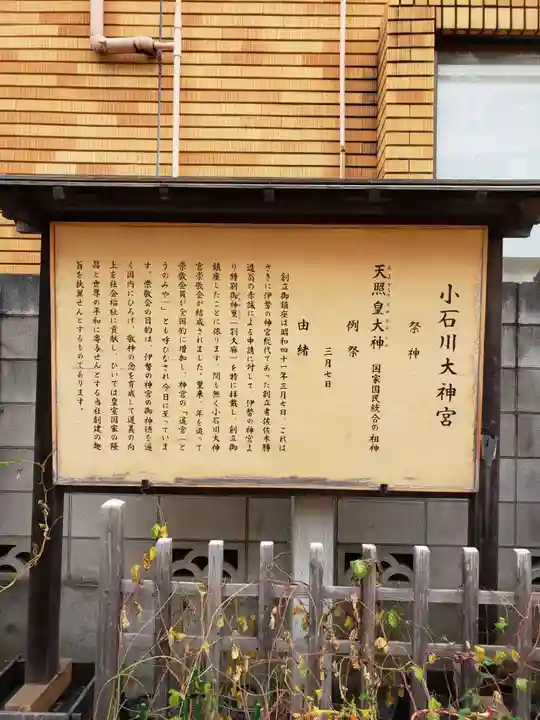 小石川大神宮
祭神
あまてらすすめおおかみ
天照皇大神 国家国民統合の祖神
例祭
三月七日
由緒
創立御鎮座は昭和四十一年三月七日、これは
さきに伊勢の神宮総代であった創立者佐佐木勝
造翁の赤誠による申請に対して、伊勢の神宮よ
り特別御神璽「剣大麻」を特に拝戴し、創立御
鎮座したことに依ります。間も無く小石川大神
宮崇敬会が結成されました。爾来、年を追って
崇敬会員が全国的に増加し、神宮の「遙宮」と
うのみや」とも呼びなされ今日に至っていま
す。崇敬会の目的は、伊勢の神宮の御神徳を遍
く国内にひろげ、敬神の念を育成して道義の向
上を社会福祉に貢献し、ひいては皇室国家の隆
昌と世界の平和に寄与せんとする当社創建の趣
旨を扶翼せんとするものであります。